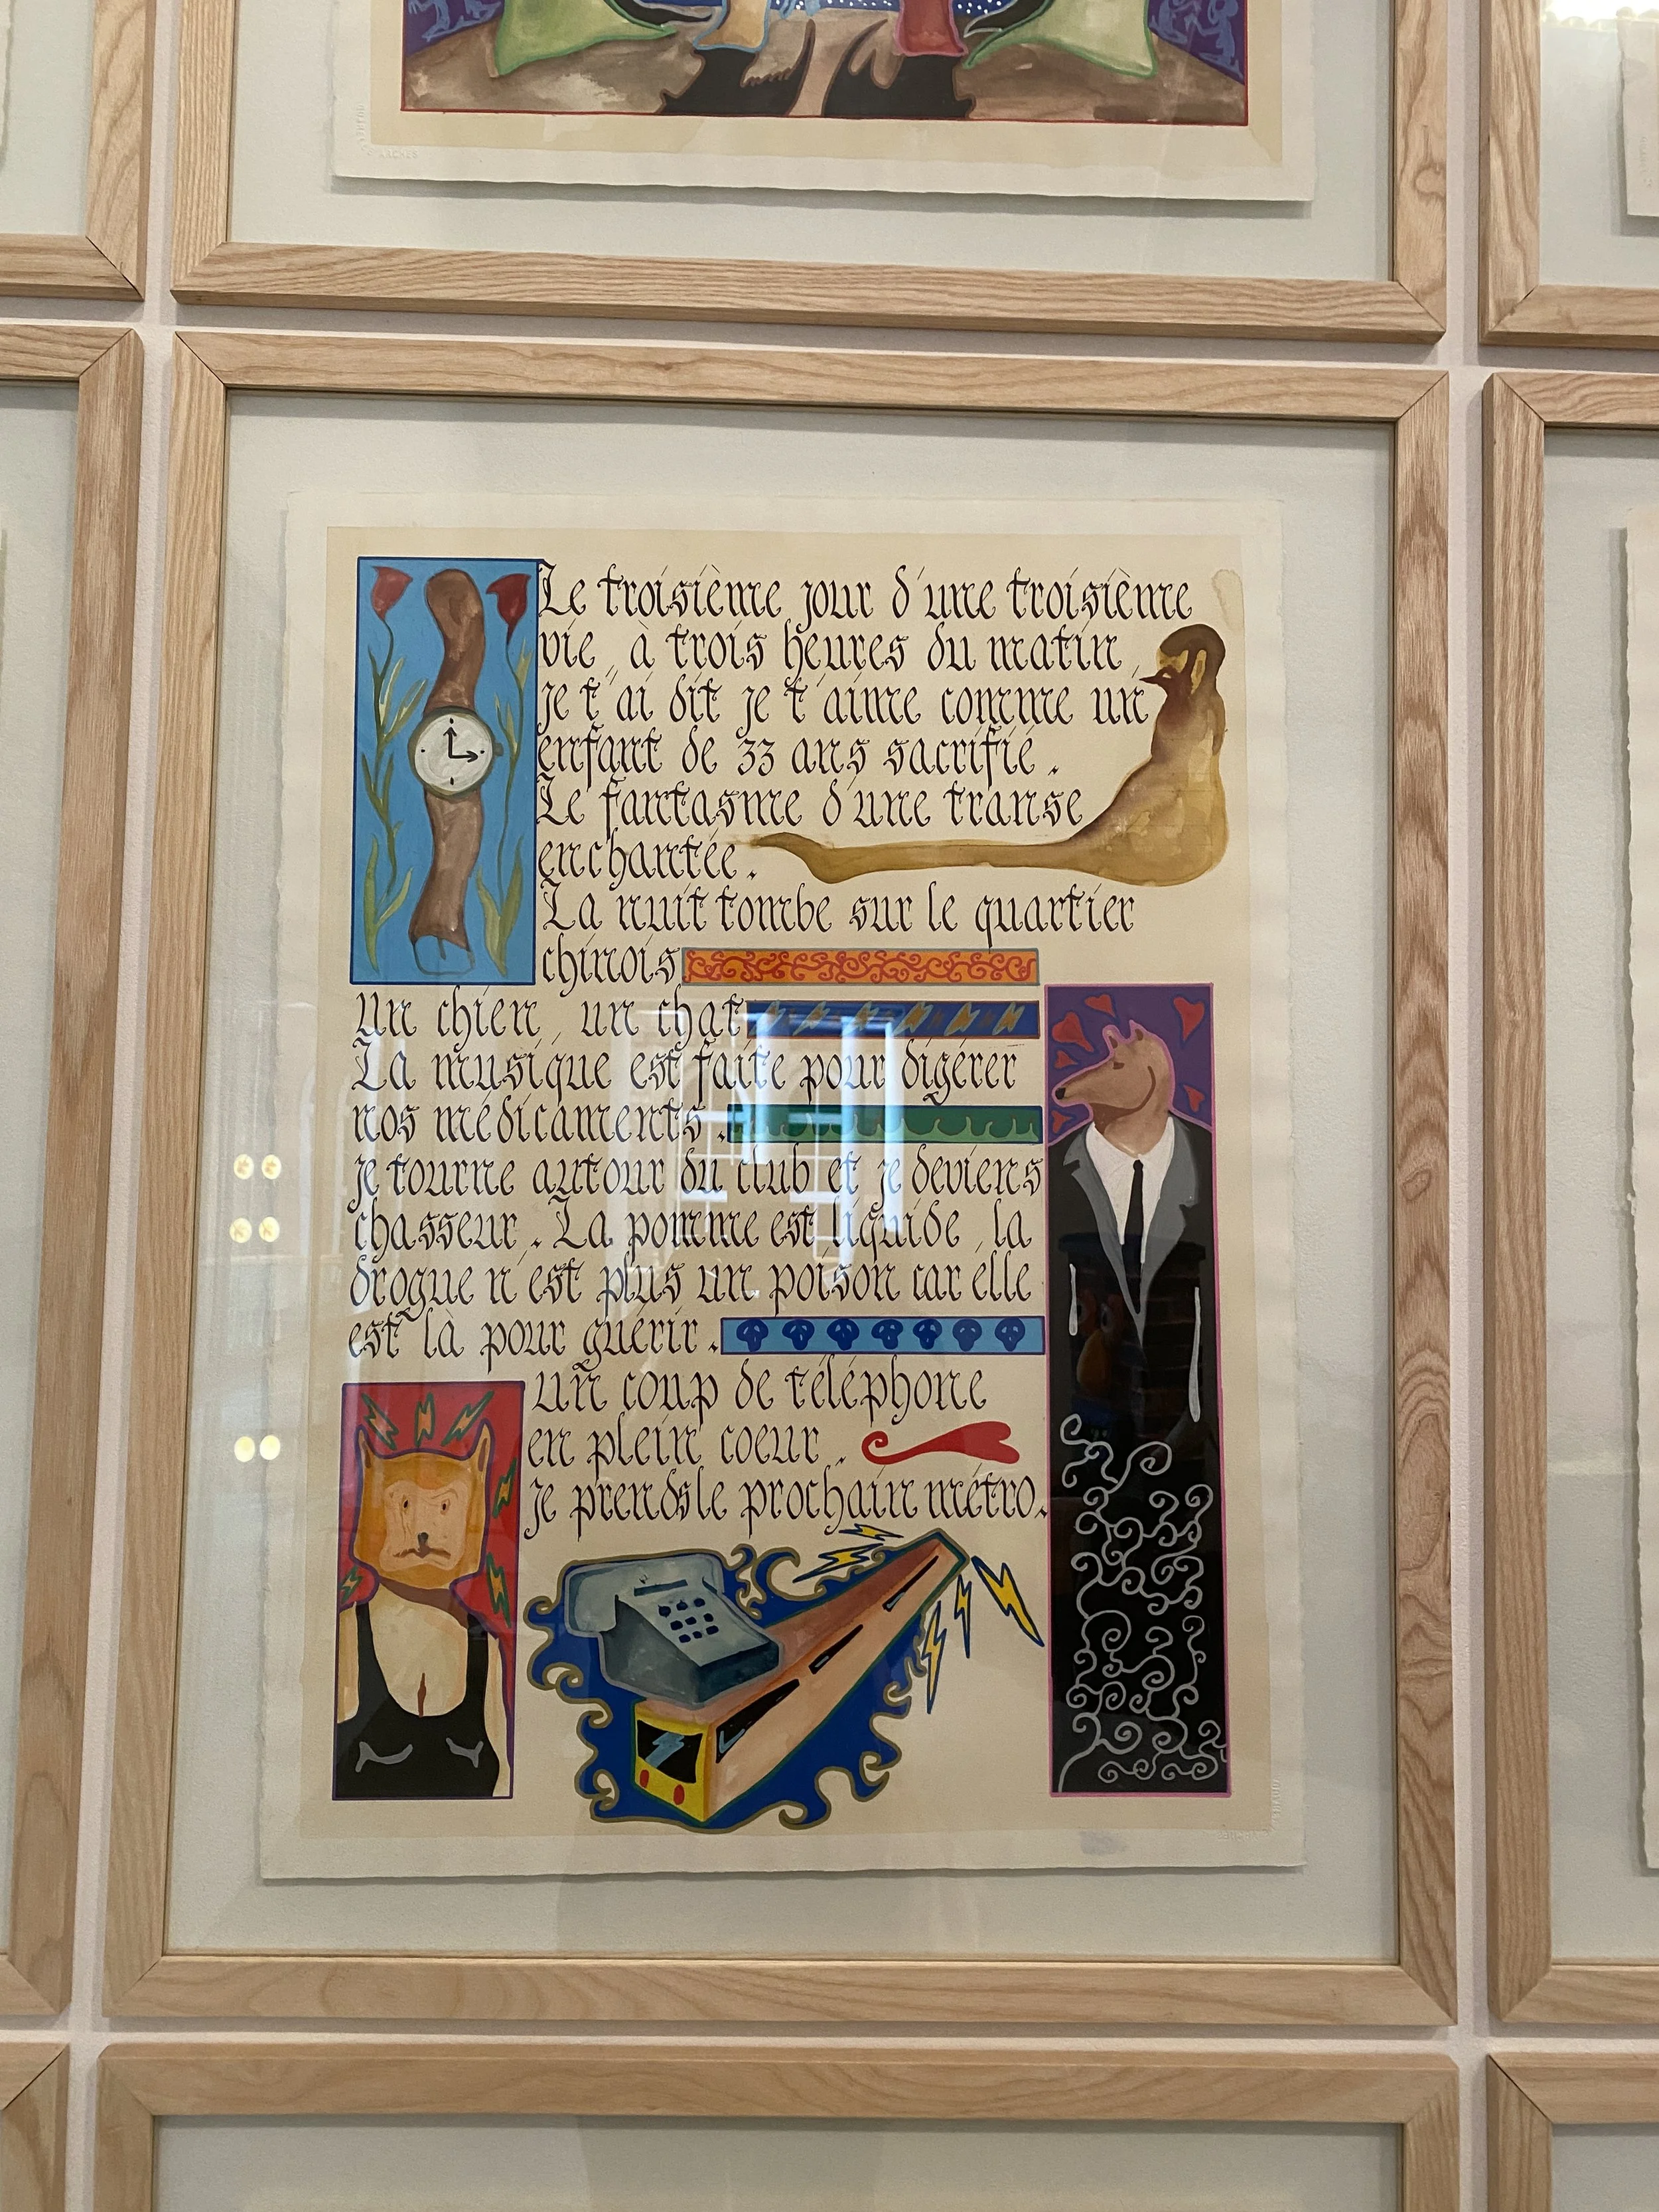 ARCHES
Le troisième jour d'une troisième
vie, à trois heures du matin,
je t'ai dit je t'aime comme un
enfant de 33 ans sacrifié.
Le fantasme d'une transe
enchantée.
La nuit tombe sur le quartier
chinois
Un chien, un chat
La musique est faite pour digérer
nos médicaments.
je tourne autour du club et je deviens
chasseur. La pomme est liquide, la
drogue n'est plus un poison car elle
est là pour guérir.
un coup de téléphone
en plein coeur.
je prends le prochain métro.